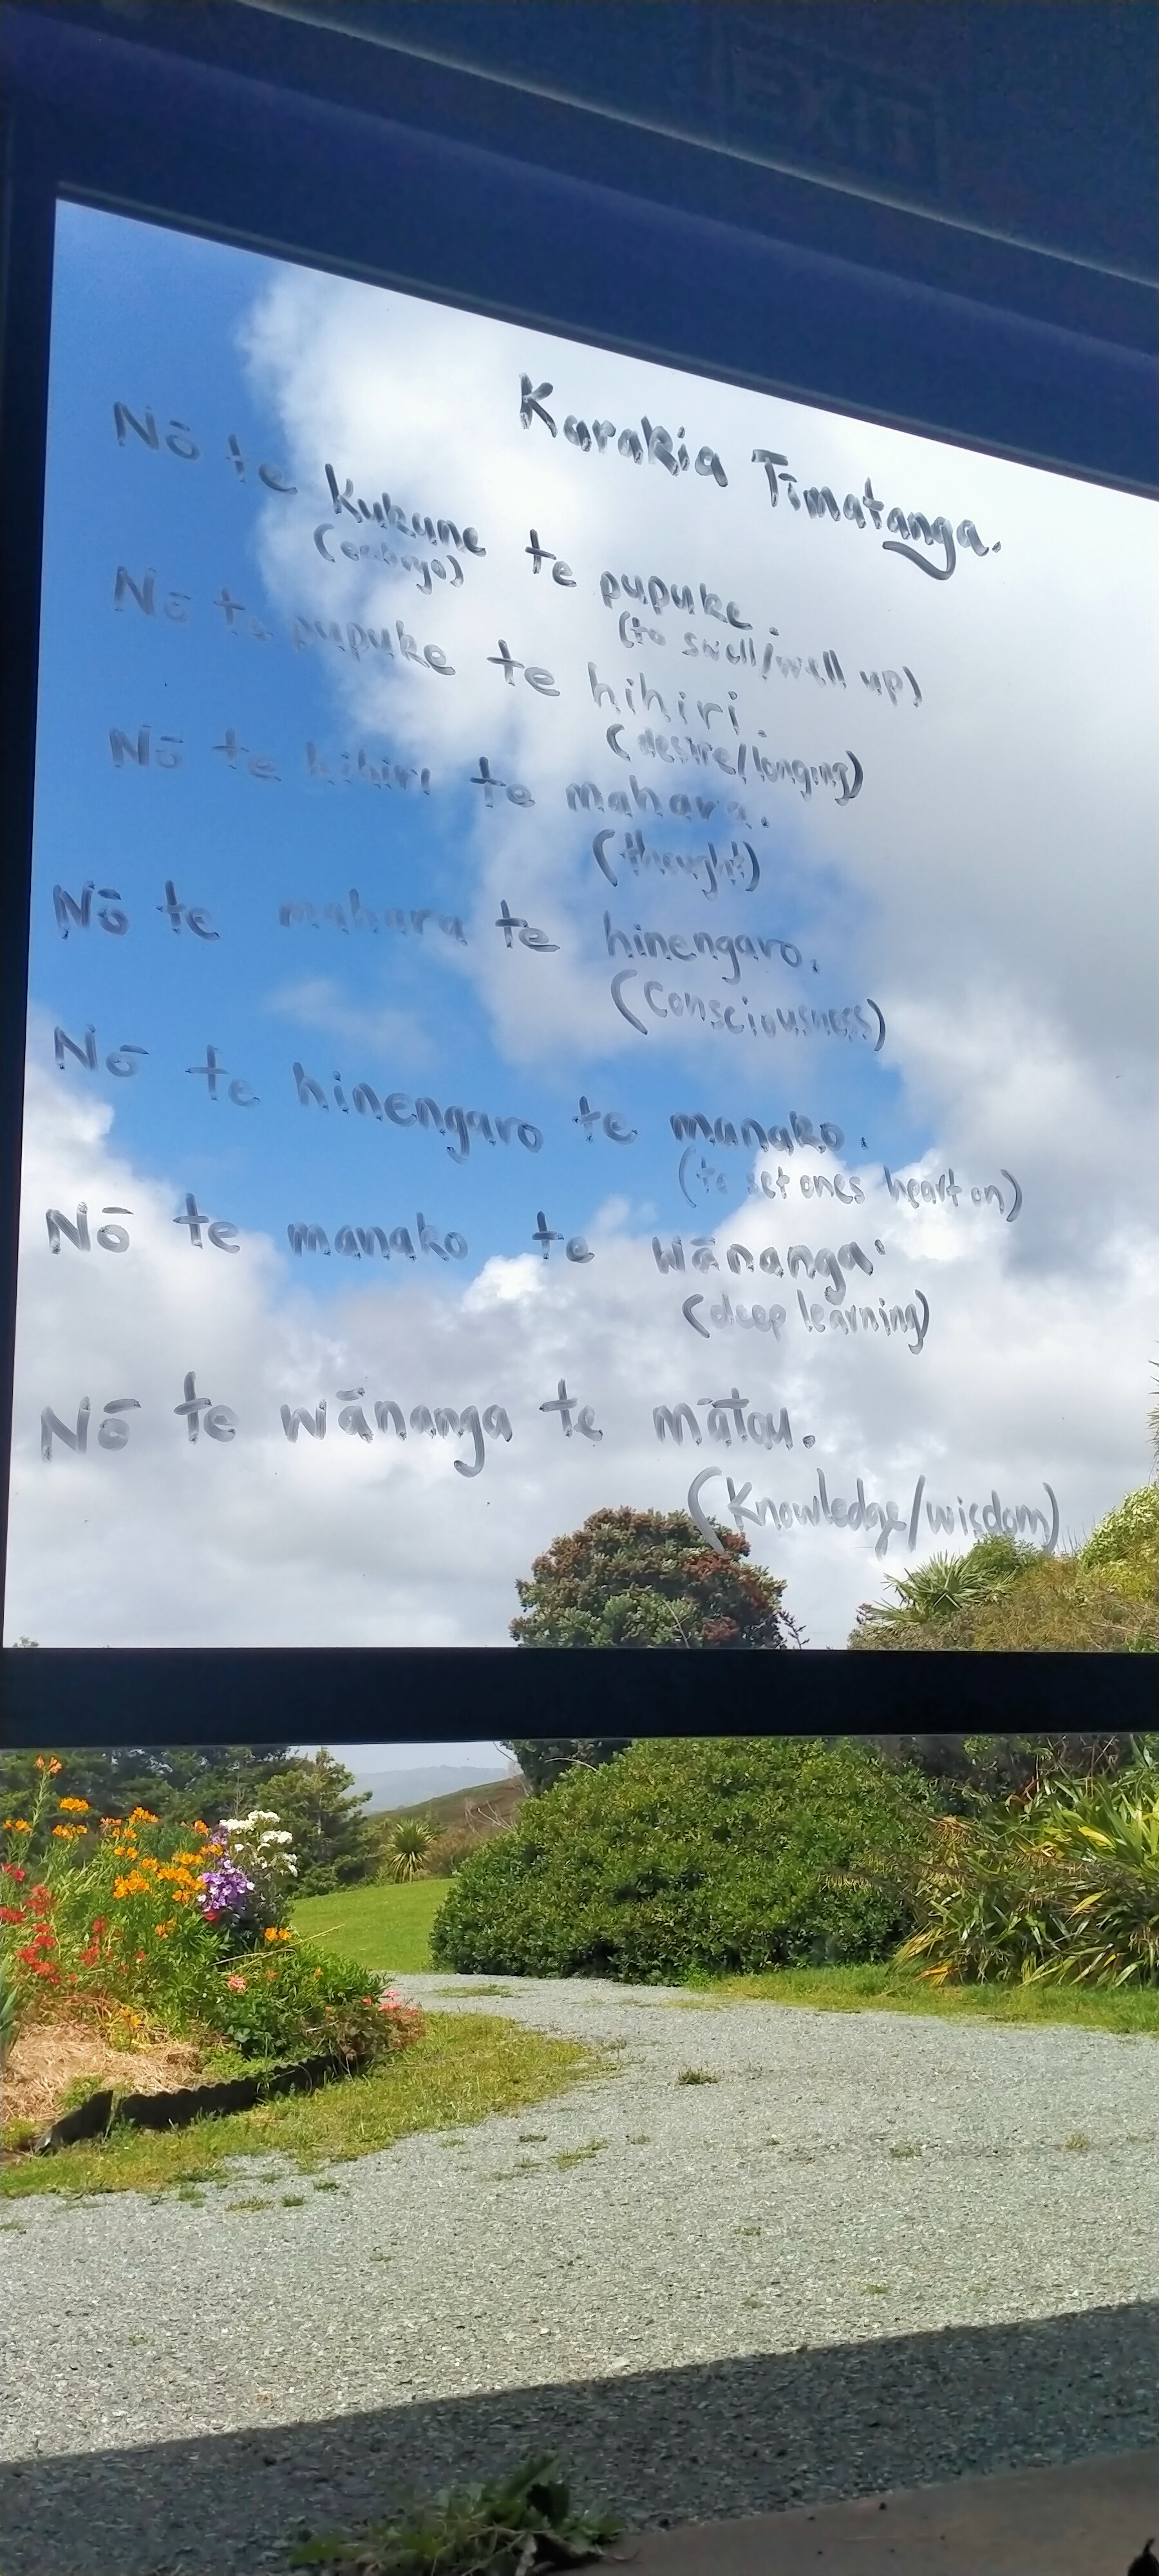 Karakia Tīmatanga.
Nō te kukune te pupuke.
(embryo) (to swell/well up)
Nō te pupuke te hihiri.
(desire/longing)
Nō te hihiri te mahara.
(thought)
Nō te mahara te hinengaro.
(Consciousness)
Nō te hinengaro te manako.
(to set ones heart on)
Nō te manako te wānanga.
(deep learning)
Nō te wānanga te mātau.
(Knowledge/wisdom)